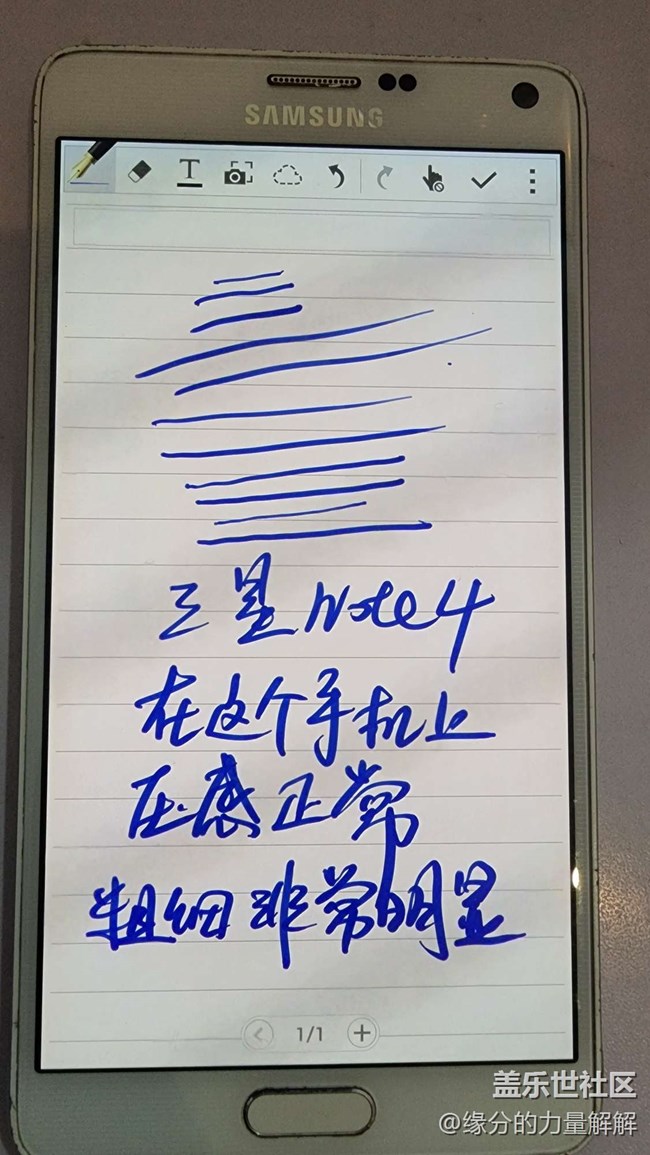 SAMSUNG
T
三星Note4
在这个手机上
压感正常
粗细非常明显
1/1
盖乐世社区
@缘分的力量解解